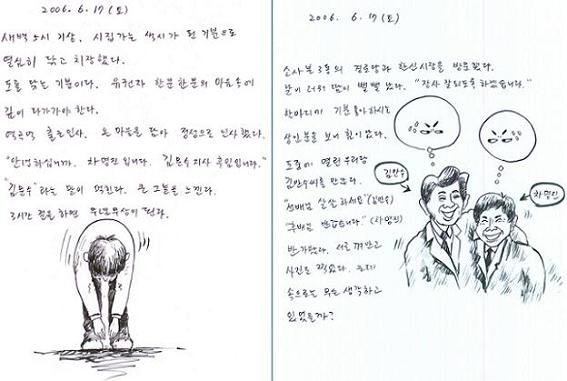 2006. 6. 17 (토)
새벽 5시 기상. 시집가는 색시가 된 기분으로
열심히 닦고 치장했다.
도를 닦는 기분이다. 유권자 한분한분의 마음속에
깊이 다가가야 한다.
역곡역 출근인사. 온 마음을 담아 정성으로 인사했다.
"안녕하십니까. 차명진입니다. 김문수지사 후임입니다."
"김문수"라는 말이 먹힌다. 큰 그늘을 느낀다.
3시간 절을 하면 무념무상이 된다.
2006. 6. 17 (토)
소사본 3동의 경로당과 한신시장을 방문했다.
날이 더워 땀이 뻘뻘 났다. "장사 잘되도록 하겠습니다."
한마디에 기분 좋아하시는
상인분을 보니 힘이 났다.
도중에 열린우리당
김만수씨를 만났다.
"선배님 살살 하세요" (김만수)
"후배님 반갑습니다." (차명진)
반가웠다. 서로 껴안고
사진도 찍었다. 근데
속으로는 무슨 생각하고
있었을까?
김만수
차명진